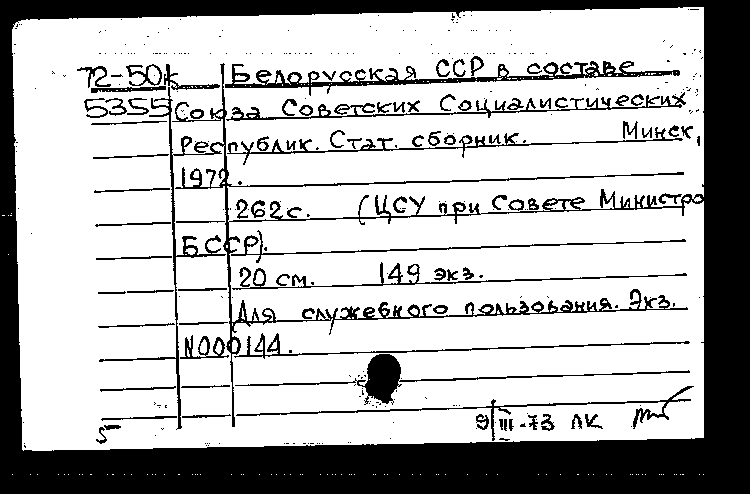 72-50к Белорусская ССР в составе
5355 Союза Советских Социалистических
Республик. Стат. сборник. Минск,
1972.
262 с. (ЦСУ при Совете Министро
БССР).
20 см. 149 экз.
Для служебного пользования. Экз.
N000144.
9/III-73 ЛК
5